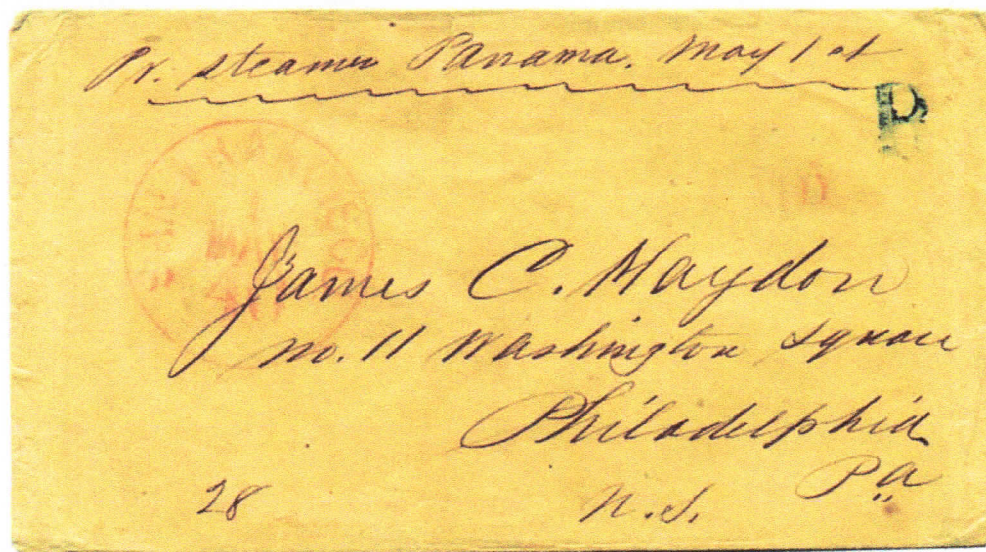 Pr. steamer Panama. May 1st
P
SAN FRANCISCO
MAY
James C. Haydon
No. 11 Washington Square
Philadelphia
Pa
28
U.S.